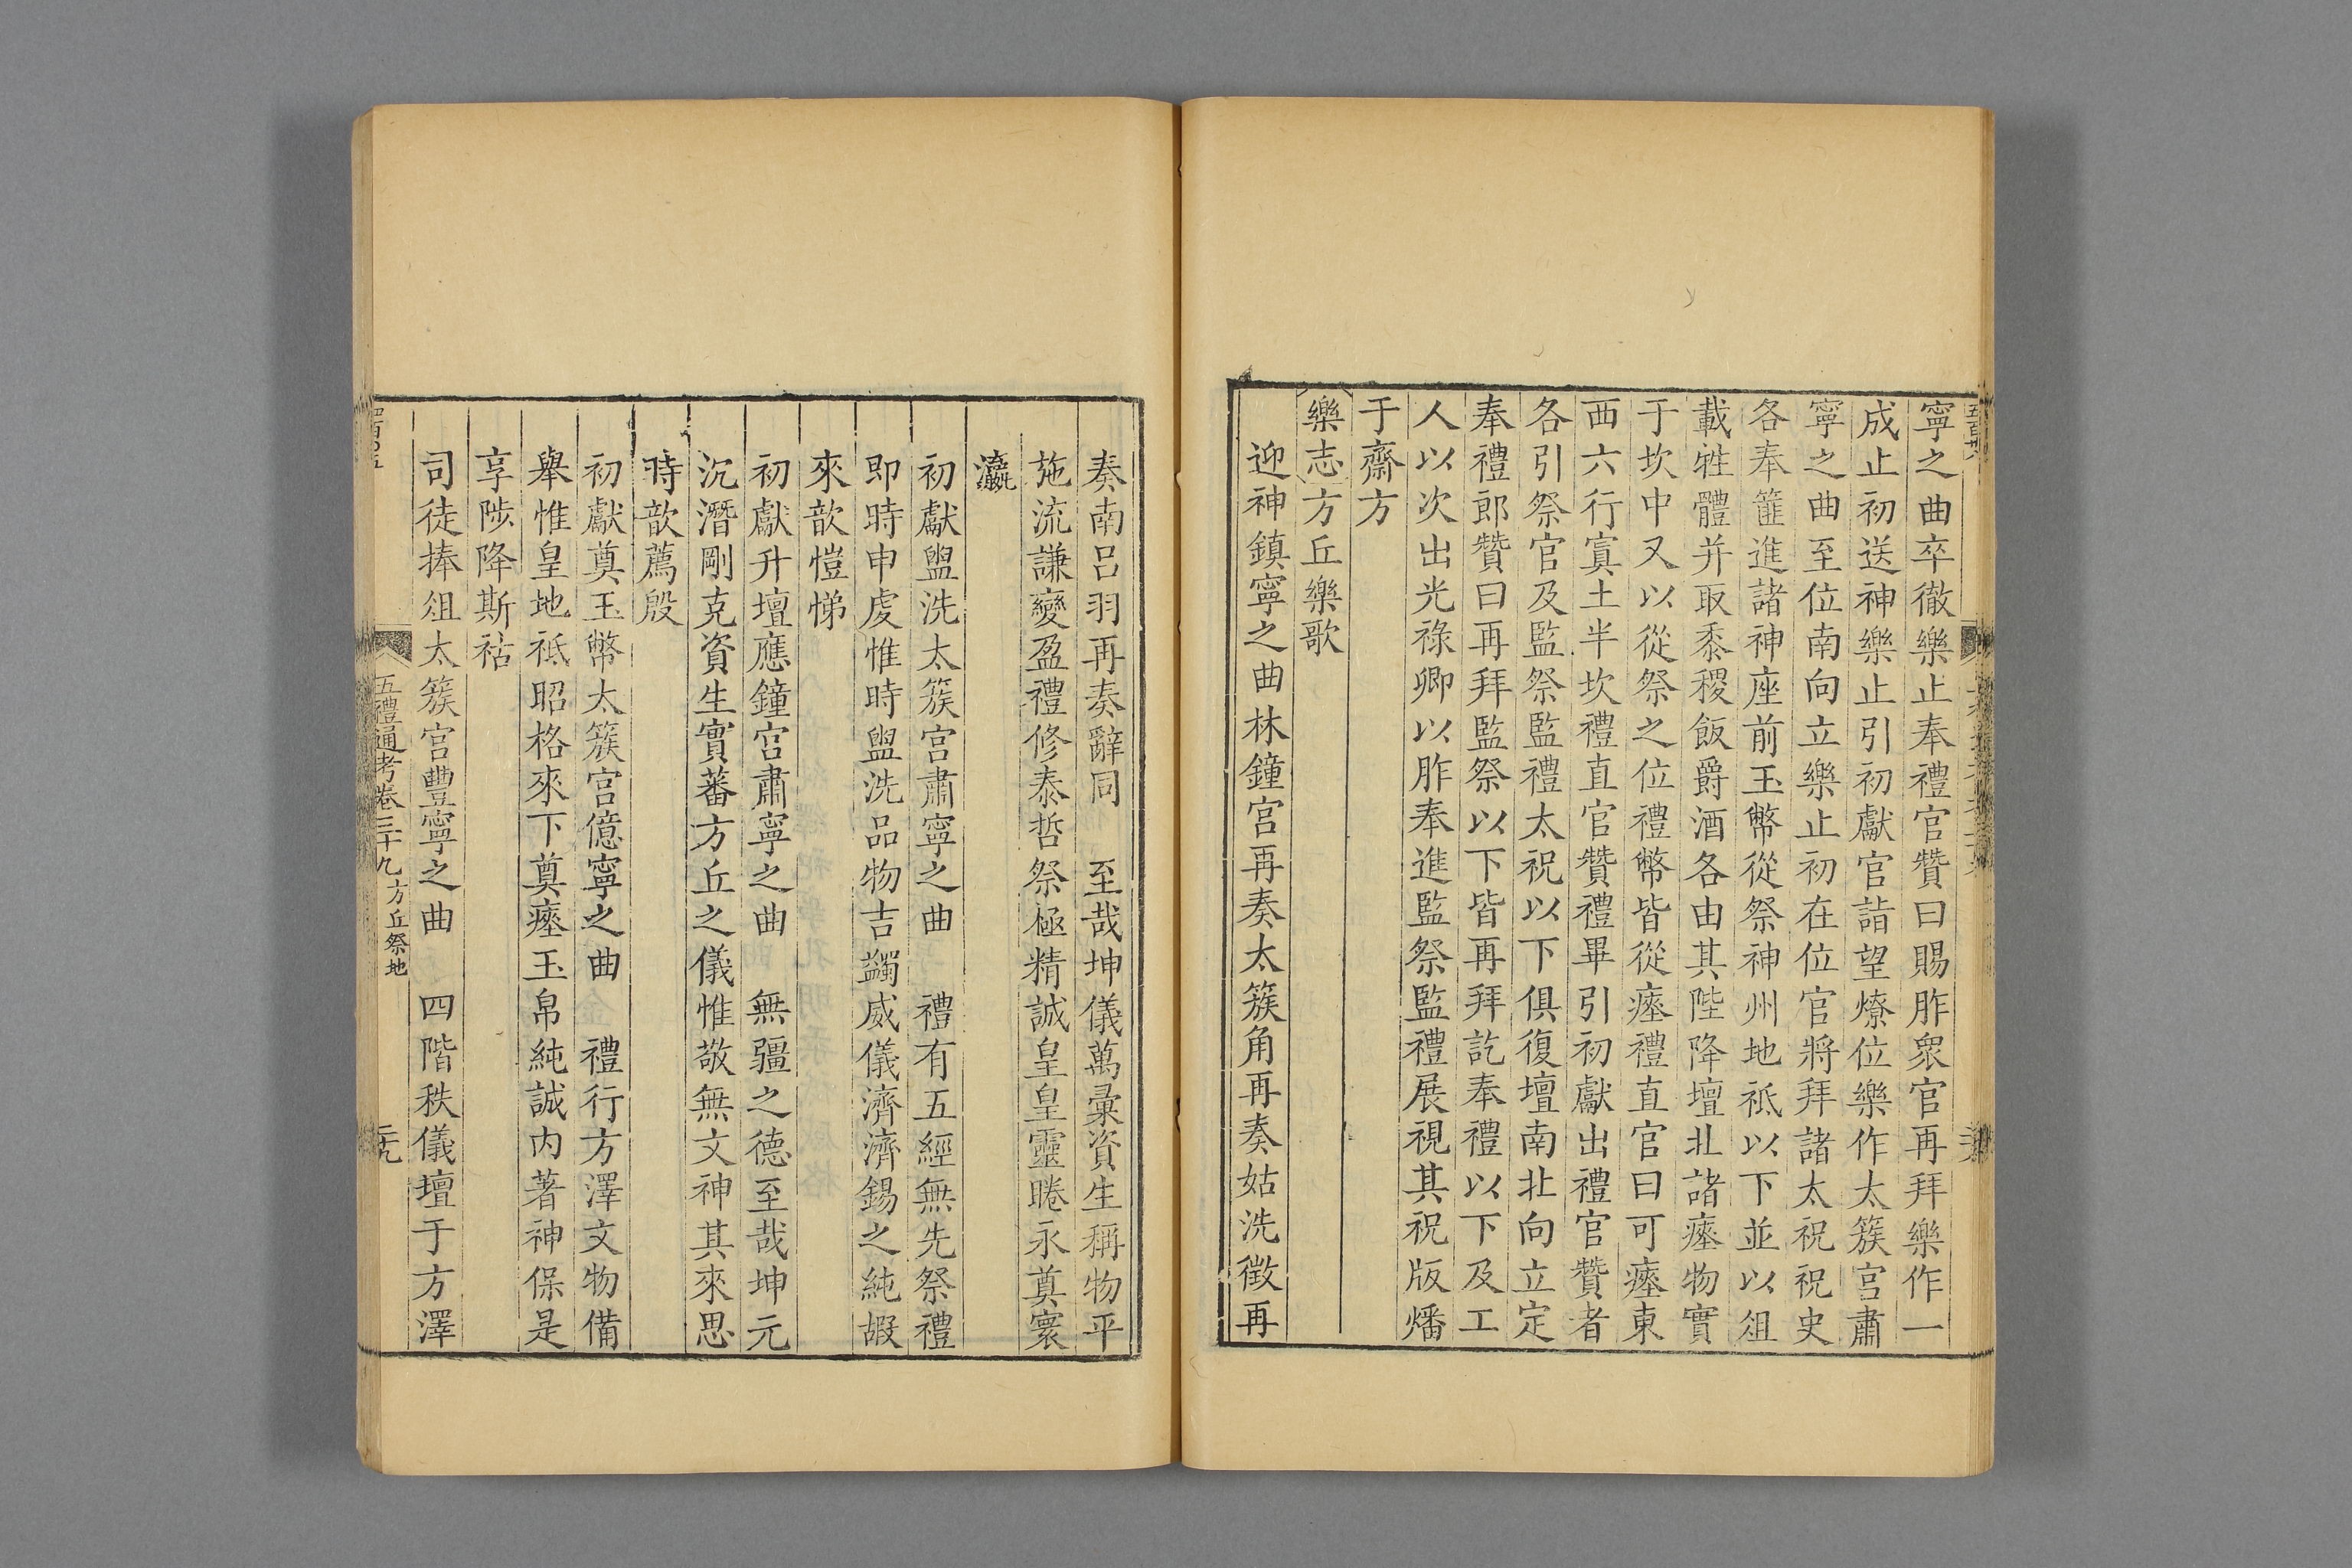 寧之曲卒徹樂止奉禮官贊曰賜胙衆官再拜樂作一
成止初送神樂止引初獻官詣望燎位樂作太簇宮肅
寧之曲至位南向立樂止初在位官將拜諸太祝祝史
各奉篚進諸神座前玉幣從祭神州地祇以下並以俎
載牲體并取黍稷飯爵酒各由其陛降壇北諸瘞物實
于坎中又以從祭之位禮幣皆從瘞禮直官曰可瘞東
西六行寘土半坎禮直官贊禮畢引初獻出禮官贊者
各引祭官及監祭監禮太祝以下俱復壇南北向立定
奉禮郎贊曰再拜監祭以下皆再拜訖奉禮以下及工
人以次出光祿卿以胙奉進監祭監禮展視其祝版燔
于齋方
樂志方丘樂歌
迎神鎮寧之曲林鐘宮再奏太簇角再奏姑洗徵再
奏南呂羽再奏辭同 至哉坤儀萬彙資生稱物平
施流謙變盈禮修泰哲祭極精誠皇皇靈睠永奠寰
瀛
初獻盥洗太簇宮肅寧之曲 禮有五經無先祭禮
即時申虔惟時盥洗品物吉蠲威儀濟濟錫之純嘏
來歆愷悌
初獻升壇應鐘宮肅寧之曲 無疆之德至哉坤元
沉潛剛克資生實蕃方丘之儀惟敬無文神其來思
時歆薦殷
初獻奠玉幣太簇宮億寧之曲 禮行方澤文物備
舉惟皇地祇昭格來下奠瘞玉帛純誠内著神保是
享陟降斯祜
司徒捧俎太簇宮豐寧之曲 四階秩儀壇于方澤
五禮通考卷三十九方丘祭地
二十九